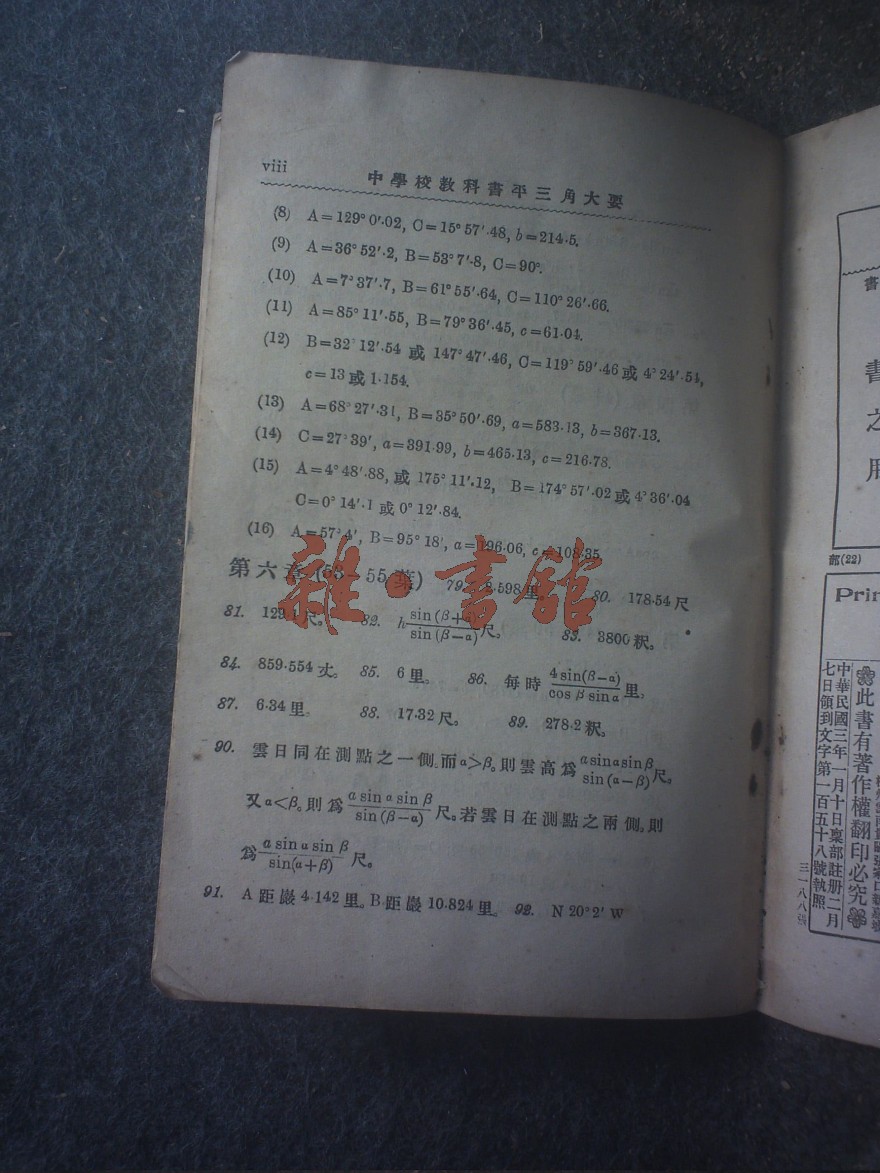 viii
中學校教科書平三角大要
(8) A=129°0′·02, C=15°57′·48, b=214·5.
(9) A=36°52′·2, B=53°7′·8, C=90°.
(10) A=7°37′·7, B=61°55′·64, C=110°26′·66.
(11) A=85°11′·55, B=79°36′·45, c=61·04.
(12) B=32°12′·54 或 147°47′·46, C=119°59′·46 或 4°24′·54,
c=13 或 1·154.
(13) A=68°27′·31, B=35°50′·69, a=583·13, b=367·13.
(14) C=27°39′, a=391·99, b=465·13, c=216·78.
(15) A=4°48′·88, 或 175°11′·12, B=174°57′·02 或 4°36′·04
C=0°14′·1 或 0°12′·84.
(16) A=57°4′, B=95°18′, a=196·06, c=108·35
第六章 (53—55葉) 79. ·598里。 80. 178·54尺
81. 129· 尺。 82. h sin(β+α)/sin(β−α) 尺。 83. 3800釈。
84. 859·554丈。 85. 6里。 86. 每時 4sin(β−α)/cosβsinα 里。
87. 6·34里 88. 17·32尺。 89. 278·2釈。
90. 雲日同在測點之一側。而α>β。則雲高爲 asinαsinβ/sin(α−β) 尺。
又α<β。則爲 a sin α sin β/sin(β−α) 尺。若雲日在測點之兩側。則
爲 a sin α sin β/sin(α+β) 尺。
91. A距巖4·142里。B距巖10·824里。 92. N 20°2′ W
雜·書館
書
書之用
部(22)
Prin
此書有著作權翻印必究
中華民國三年一月十日稟部註册二月
七日領到文字第一百五十八號執照
三一八八張